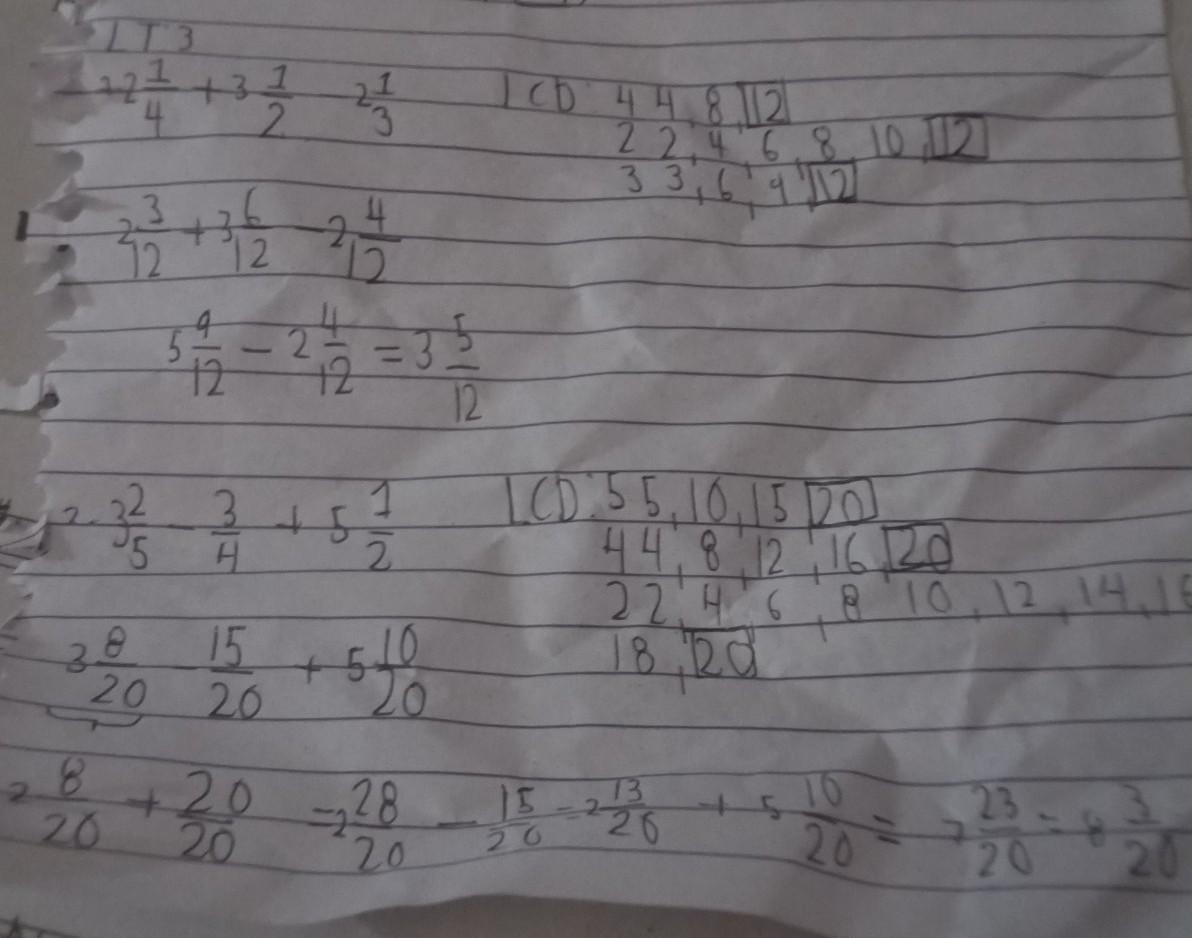 LT3
2 1/4 + 3 1/2 - 2 1/3 LCD 4 4, 8, 12
2 2, 4, 6, 8 10, 12
3 3, 6, 9, 12
2 3/12 + 3 6/12 - 2 4/12
5 9/12 - 2 4/12 = 3 5/12
2. 3 2/5 - 3/4 + 5 1/2 LCD: 5 5, 10, 15 20
4 4, 8, 12, 16, 20
2 2, 4, 6, 8 10, 12, 14, 16
18, 20
3 8/20 - 15/20 + 5 10/20
2 8/20 + 20/20 = 2 28/20 - 15/20 = 2 13/20 + 5 10/20 = 7 23/20 = 8 3/20